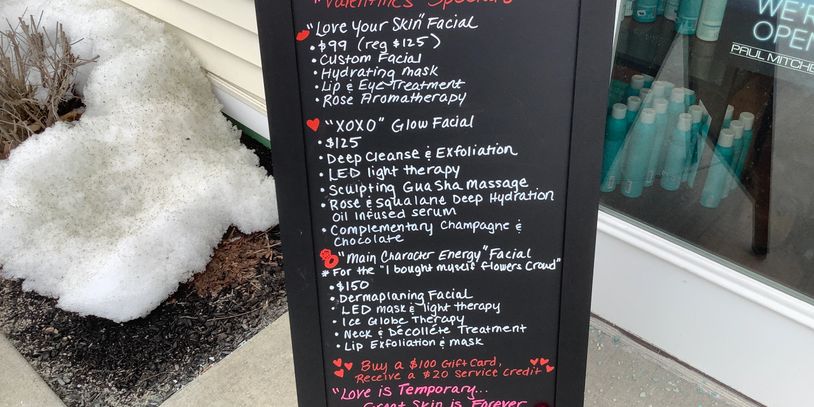 "Valentine's Specials"
"Love Your Skin" Facial
• $99 (reg $125)
• Custom Facial
• Hydrating mask
• Lip & Eye Treatment
• Rose Aromatherapy
"XOXO" Glow Facial
• $125
• Deep Cleanse & Exfoliation
• LED light therapy
• Sculpting Gua Sha Massage
• Rose & Squalane Deep Hydration
Oil Infused serum
• Complementary Champagne &
Chocolate
"Main Character Energy" Facial
* For the "I bought myself flowers Crowd"
• $150
• Dermaplaning Facial
• LED mask & light therapy
• Ice Globe Therapy
• Neck & Décolleté Treatment
• Lip Exfoliation & mask
Buy a $100 Gift Card,
Receive a $20 Service Credit
"Love is Temporary...
Great Skin is Forever
WE'RE
OPEN
PAUL MITCHE